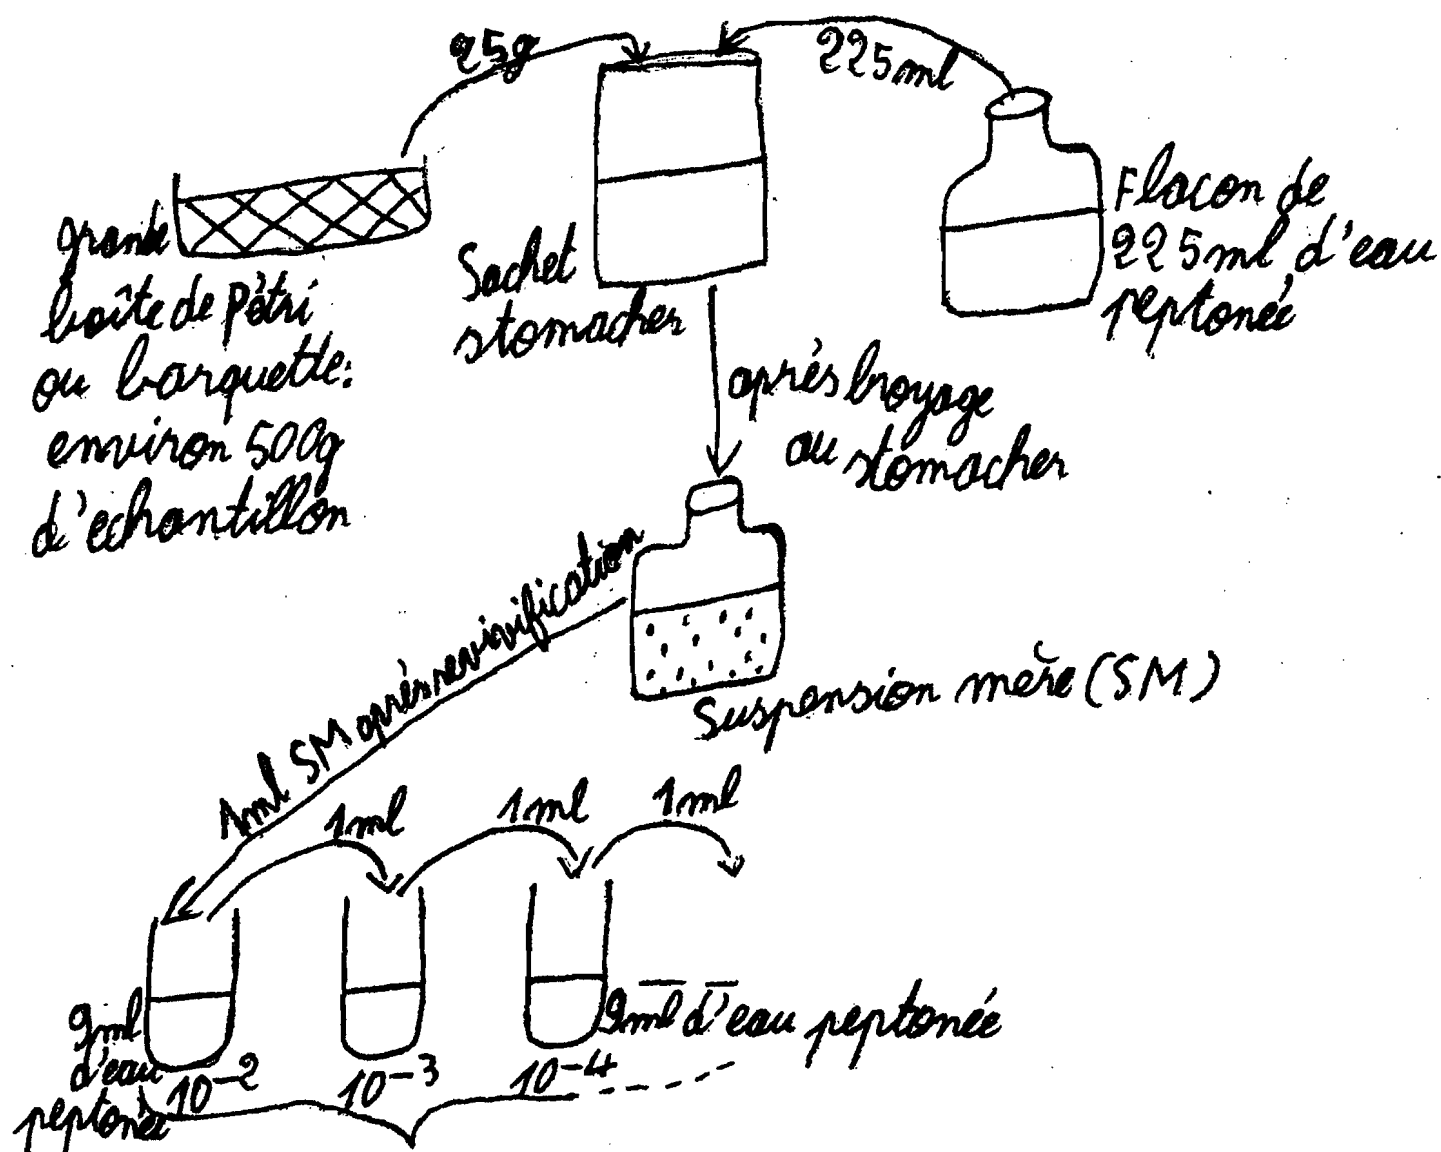 25g
225ml
grande
boîte de Pétri
ou barquette:
environ 500g
d'echantillon
Sachet
stomacher
Flacon de
225ml d'eau
peptonée
après broyage
au stomacher
Suspension mère (SM)
1ml SM après revivification
1ml
1ml
1ml
9ml
d'eau
peptonée
9ml d'eau peptonée
10-2
10-3
10-4